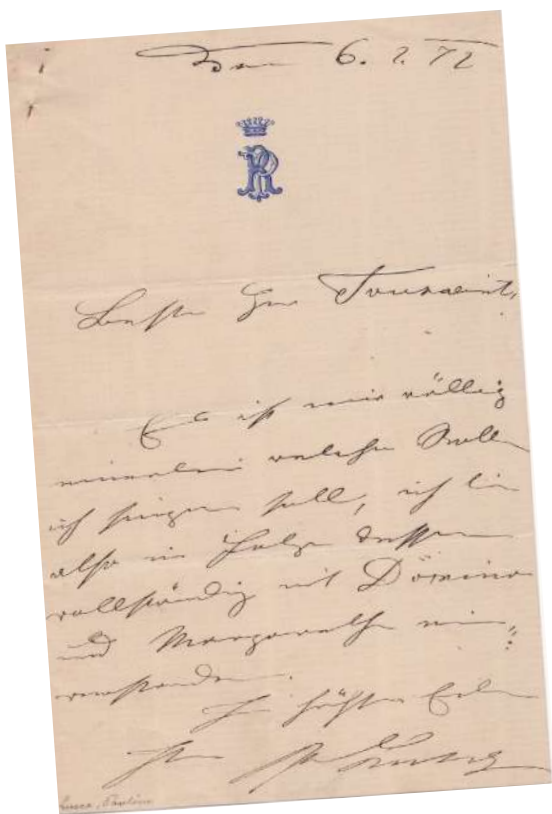 Den 6. 2. 72
PR
Bester Herr Toussaint,
Es ist mir völlig
einerlei welche Rolle
ich singen soll, ich bin
also in Folge dessen
vollständig mit Domino
und Margarethe ein-
verstanden.
In höchster Eile
Ihre
Lucca, Pauline